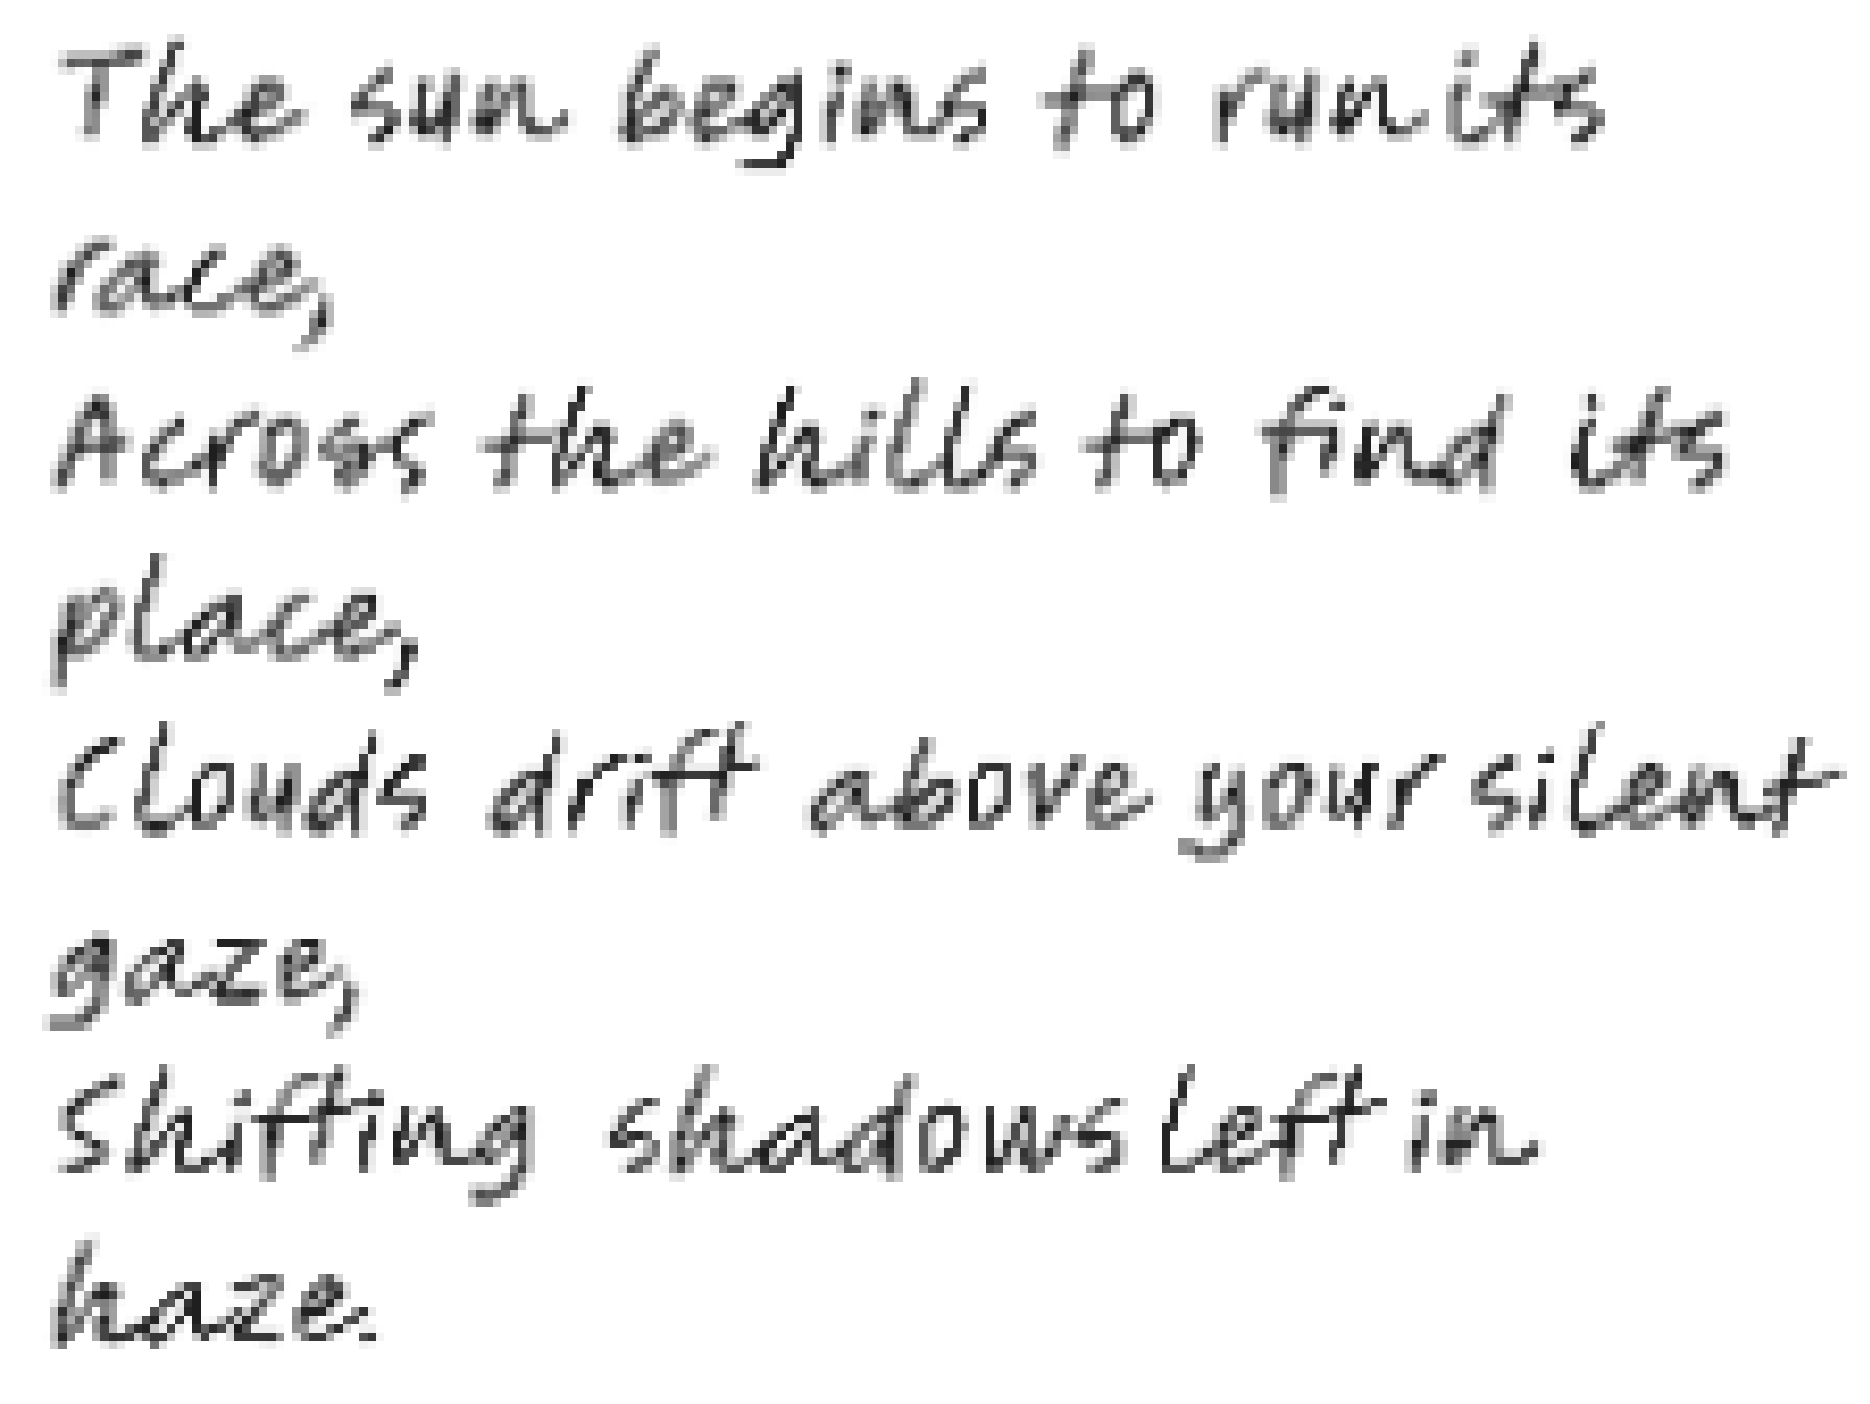 The sun begins to run its
race,
Across the hills to find its
place,
Clouds drift above your silent
gaze,
Shifting shadows left in
haze.